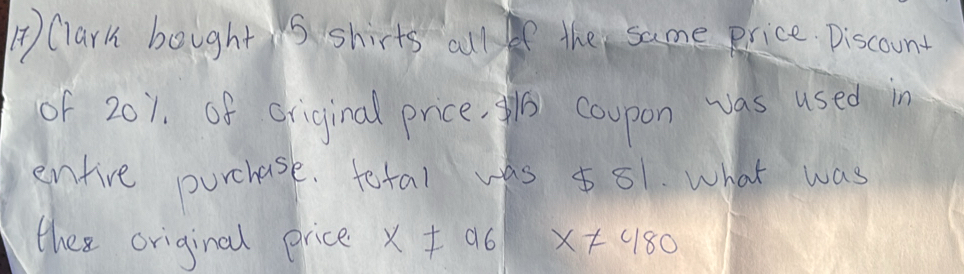 17) Clark bought 5 shirts all of the same price. Discount
of 20%. of original price. $15 coupon was used in
entire purchase. total was $81. What was
the original price X ≠ 96 X ≠ 480